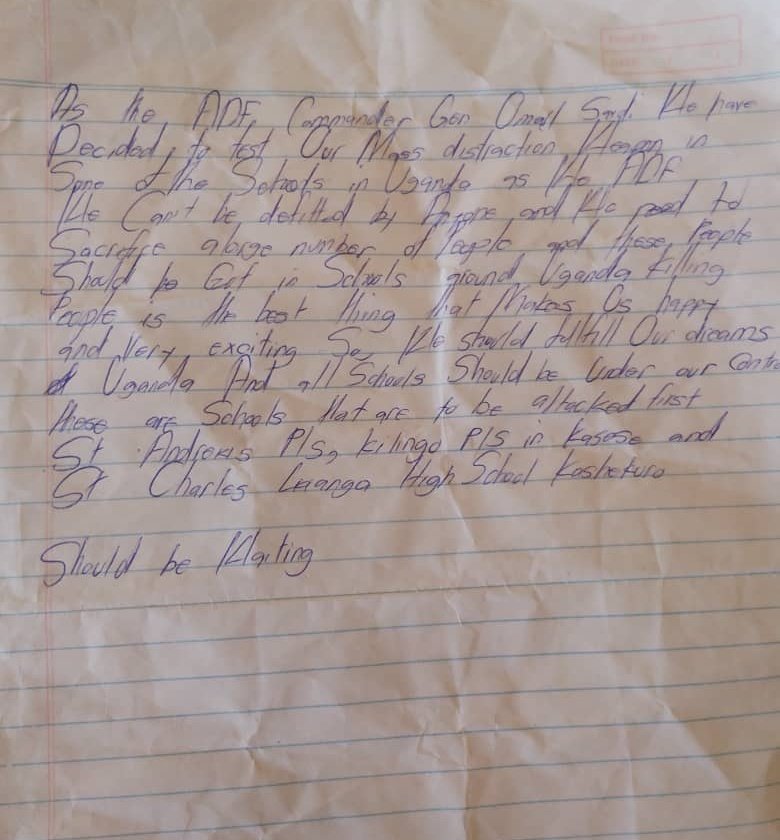 As the ADF, Commander Gen Omail Said. We have
Decided, to test Our Mass distraction Weapon in
Some of the Schools in Uganda as We ADF
We Can't be defitted by Anyone and We need to
Sacrifice a large number of People and these People
Should be Got in Schools ground Uganda killing
People is the best thing that Makes Us happy
and Very exciting So We should fullfill Our dreams
Uganda And all Schools Should be Under our Contro
these are Schools that are to be attacked first
St Andrews P/S, kilingo P/S in Kasese and
St Charles Lwanga High School Kashekuro
Should be Waiting